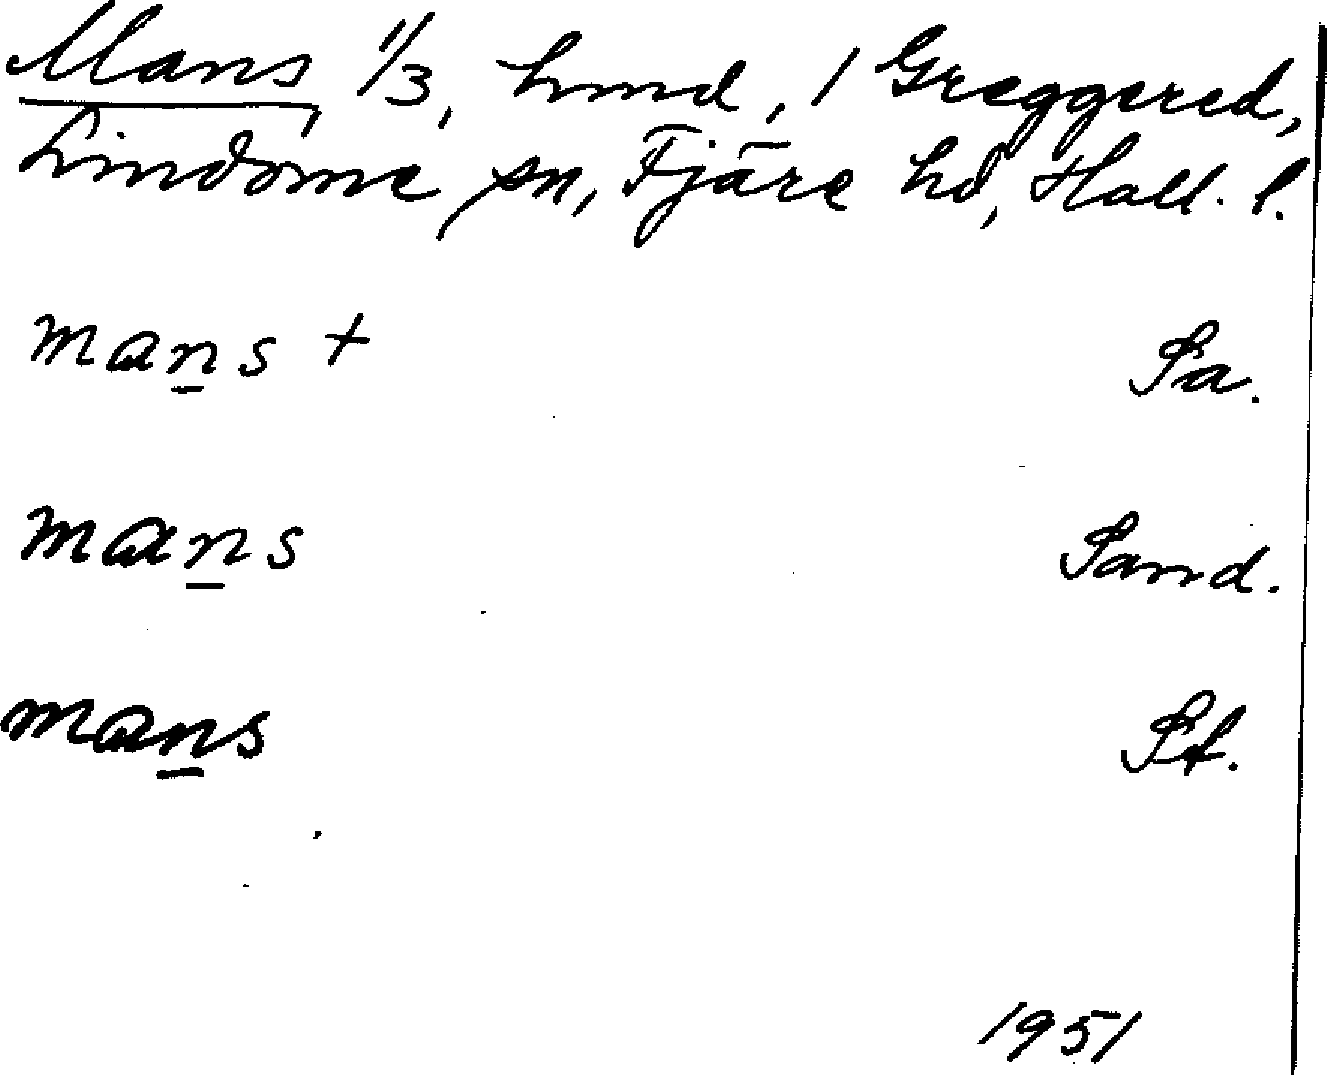 Mans, 1/3, hmd, 1 Greggered,
Lindome sn, Fjäre hd, Hall. l.
mans + Sa.
mans Sand.
mans St.
1951